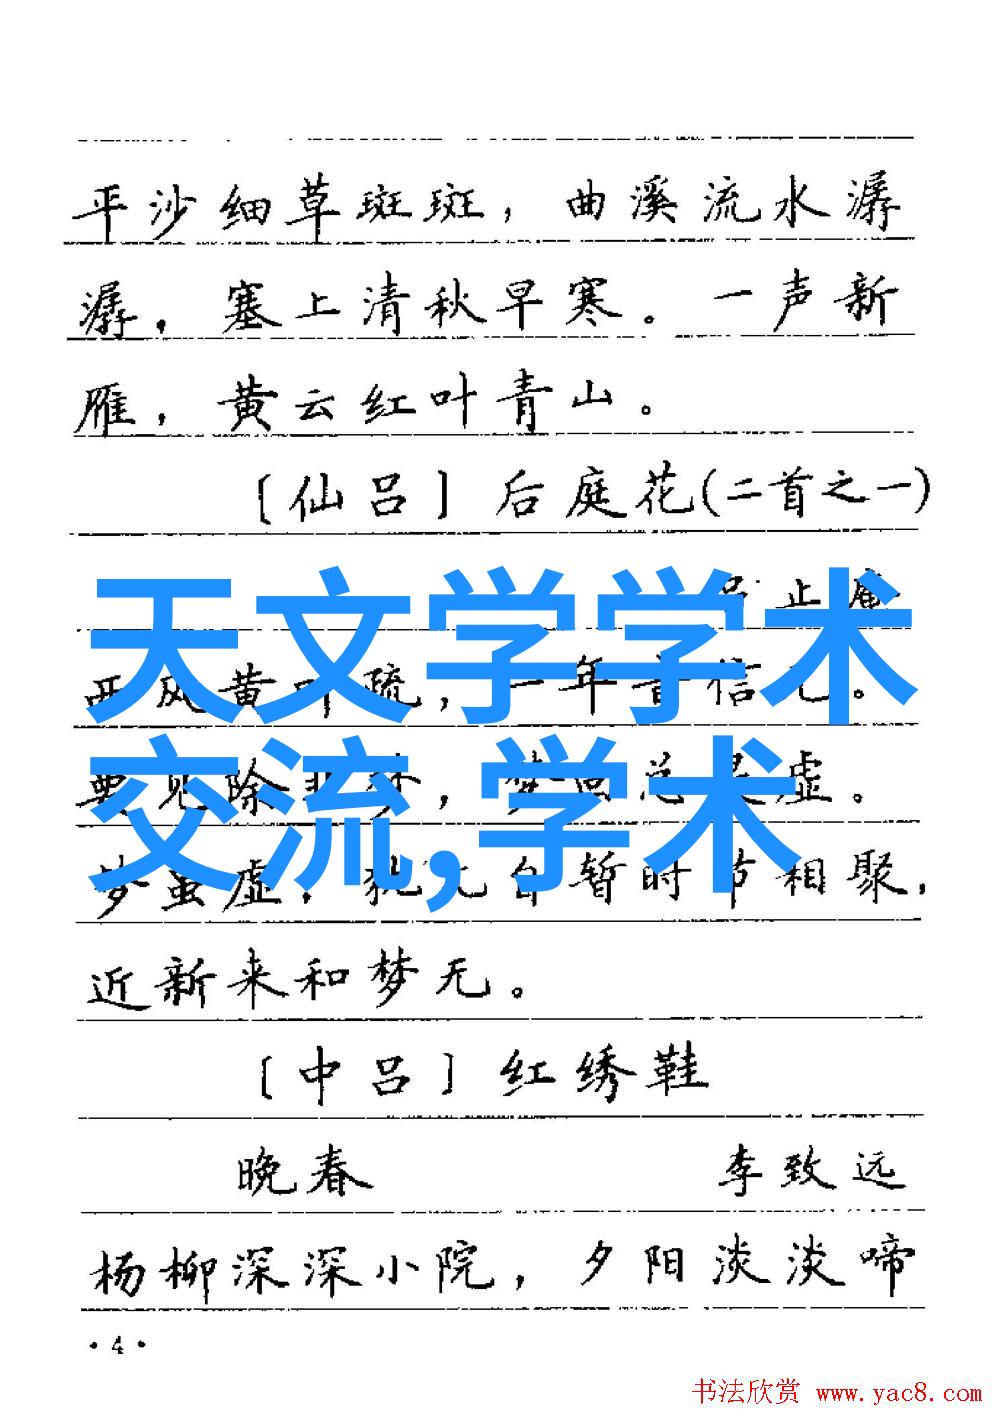 平沙细草斑斑，曲溪流水潺
潺，塞上清秋早寒。一声新
雁，黄云红叶青山。
〔仙吕〕后庭花(二首之一)
吕止庵
天文学学术
西风黄叶疏，一年音信无。
交流,学术
要见除非梦，梦回总是虚。
梦虽虚，犹兀自暂时节相聚，
近新来和梦无。
〔中吕〕红绣鞋
晚春 李致远
杨柳深深小院，夕阳淡淡啼
·4·
书法欣赏 www.yac8.com